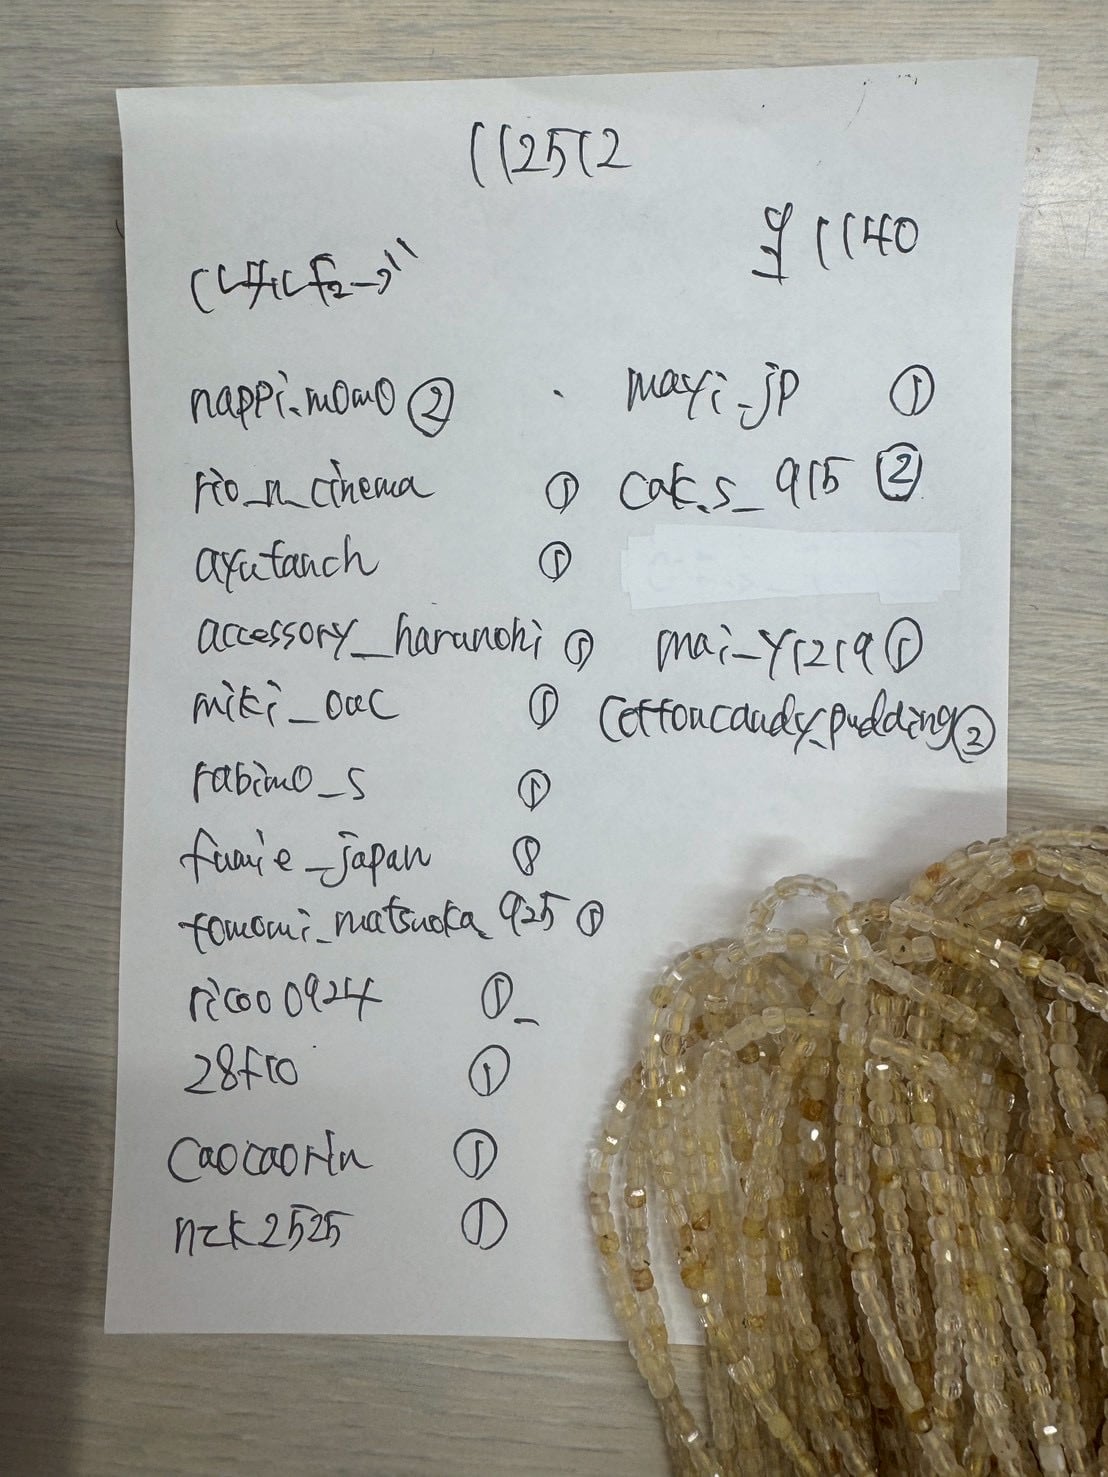 112512
¥1140
nappi.momo ②
rio_n_cinema ①
ayutanch ①
accessory_haranohi ①
miki_ouc ①
rabimo_s ①
fumie_japan
tomomi_matsuoka_925 ①
ricoo0924 ①
28fro ①
caocaorin ①
nzk2525 ①
mayi_jp ①
cak.s_915 ②
mai_y1219 ①
cottoncandy_pudding ②